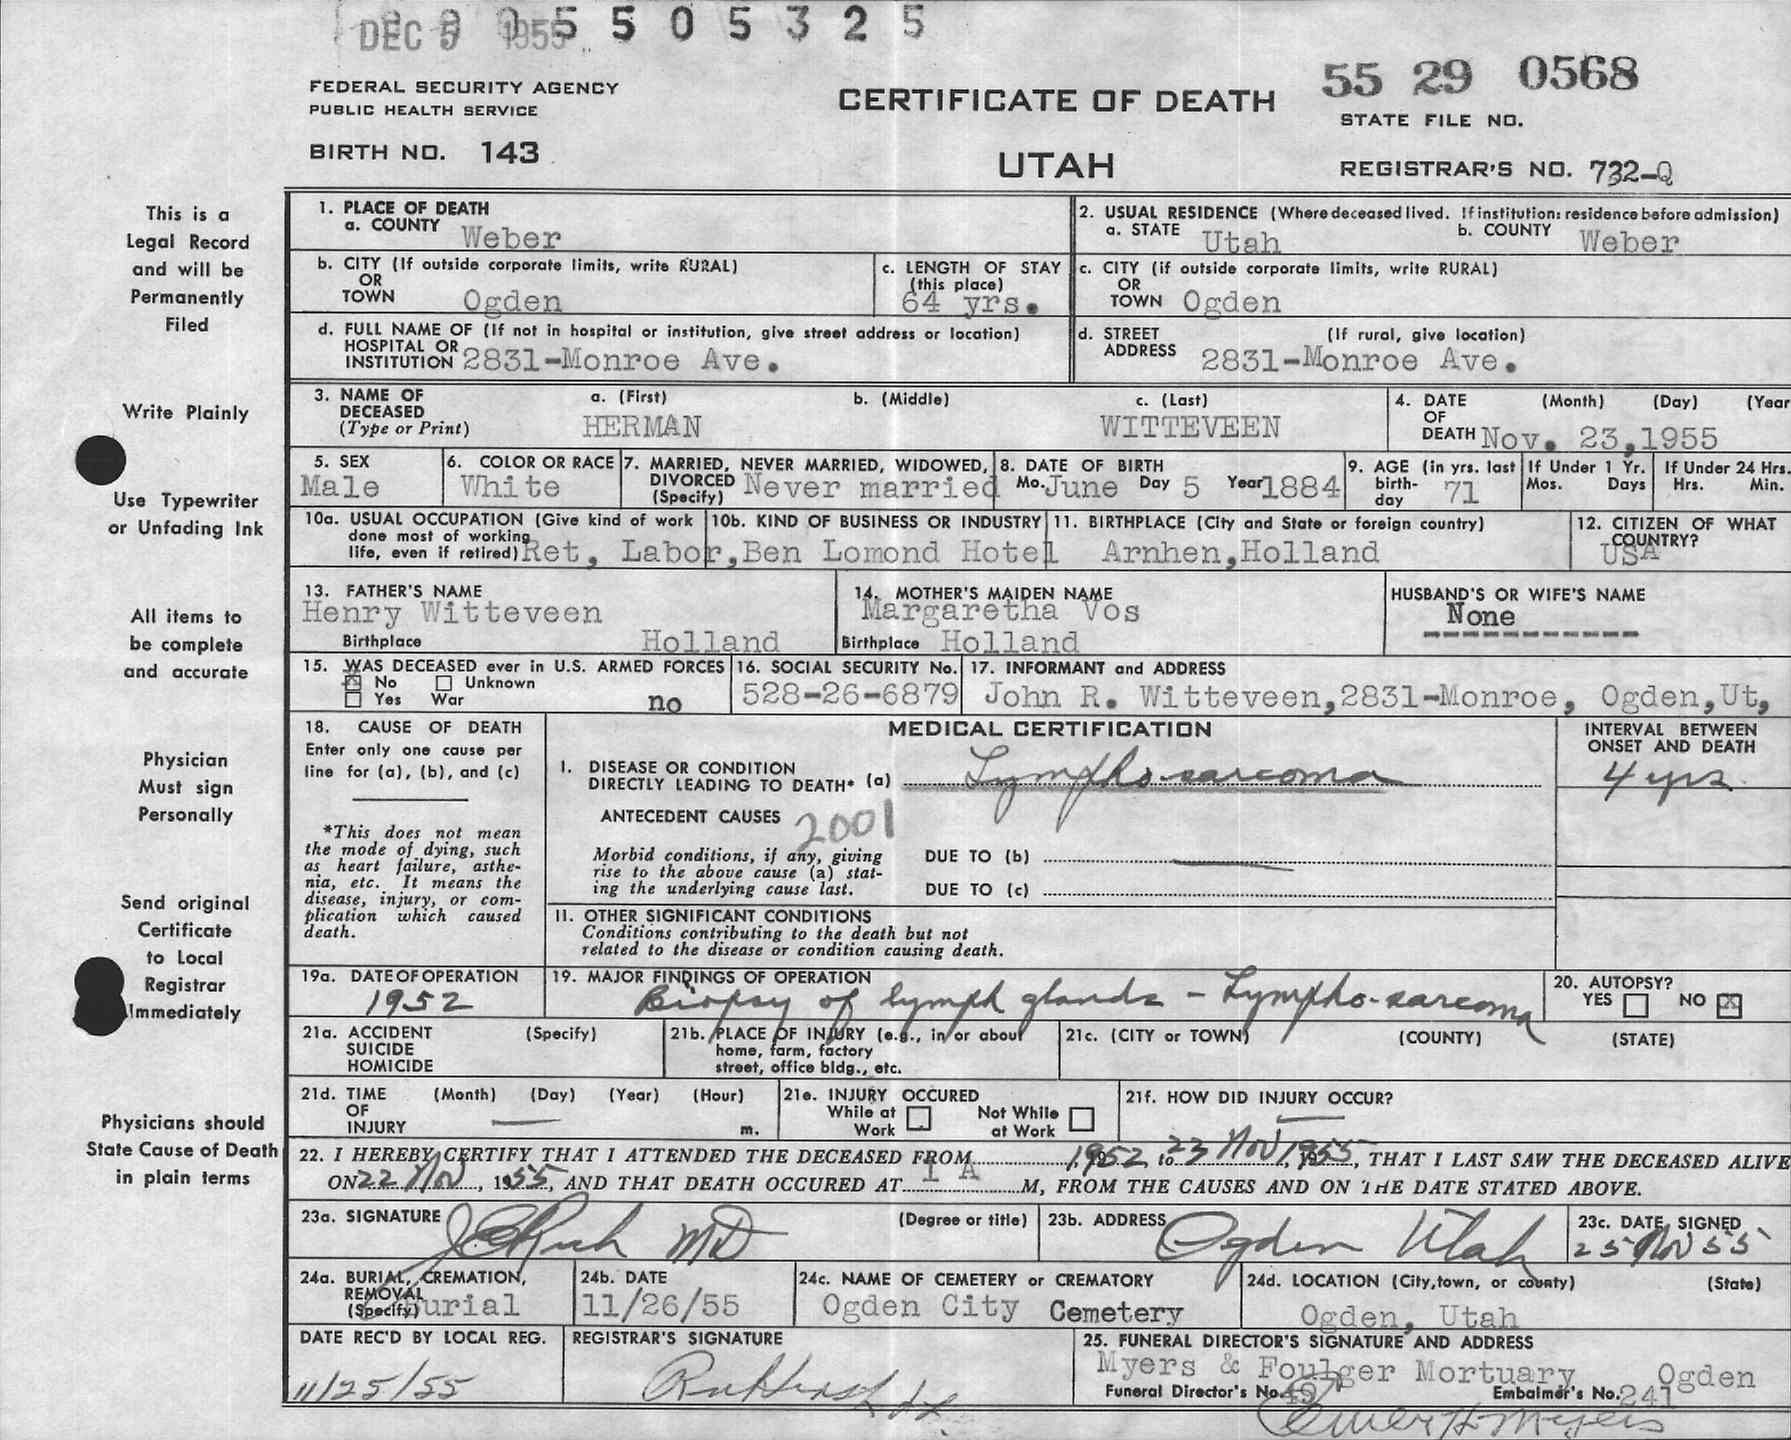 DEC 5 1955
5505325
55 29 0568
FEDERAL SECURITY AGENCY
PUBLIC HEALTH SERVICE
CERTIFICATE OF DEATH
STATE FILE NO.
BIRTH NO. 143
UTAH
REGISTRAR'S NO. 732-Q
This is a
Legal Record
and will be
Permanently
Filed
Write Plainly
Use Typewriter
or Unfading Ink
All items to
be complete
and accurate
Physician
Must sign
Personally
Send original
Certificate
to Local
Registrar
Immediately
Physicians should
State Cause of Death
in plain terms
1. PLACE OF DEATH
a. COUNTY Weber
2. USUAL RESIDENCE (Where deceased lived. If institution: residence before admission)
a. STATE Utah b. COUNTY Weber
b. CITY (If outside corporate limits, write RURAL)
OR
TOWN Ogden
c. LENGTH OF STAY
(this place)
64 yrs.
c. CITY (if outside corporate limits, write RURAL)
OR
TOWN Ogden
d. FULL NAME OF (If not in hospital or institution, give street address or location)
HOSPITAL OR
INSTITUTION 2831-Monroe Ave.
d. STREET (If rural, give location)
ADDRESS 2831-Monroe Ave.
3. NAME OF
DECEASED
(Type or Print)
a. (First) b. (Middle) c. (Last)
HERMAN WITTEVEEN
4. DATE (Month) (Day) (Year
OF
DEATH Nov. 23,1955
5. SEX
Male
6. COLOR OR RACE
White
7. MARRIED, NEVER MARRIED, WIDOWED,
DIVORCED
(Specify) Never married
8. DATE OF BIRTH
Mo. June Day 5 Year 1884
9. AGE (in yrs. last
birth-
day 71
If Under 1 Yr.
Mos. Days
If Under 24 Hrs.
Hrs. Min.
10a. USUAL OCCUPATION (Give kind of work
done most of working
life, even if retired) Ret, Labor,
10b. KIND OF BUSINESS OR INDUSTRY
Ben Lomond Hotel
11. BIRTHPLACE (City and State or foreign country)
Arnhen,Holland
12. CITIZEN OF WHAT
COUNTRY?
USA
13. FATHER'S NAME
Henry Witteveen
Birthplace Holland
14. MOTHER'S MAIDEN NAME
Margaretha Vos
Birthplace Holland
HUSBAND'S OR WIFE'S NAME
None
15. WAS DECEASED ever in U.S. ARMED FORCES
No Unknown
Yes War no
16. SOCIAL SECURITY No.
528-26-6879
17. INFORMANT and ADDRESS
John R. Witteveen,2831-Monroe, Ogden,Ut,
18. CAUSE OF DEATH
Enter only one cause per
line for (a), (b), and (c)
*This does not mean
the mode of dying, such
as heart failure, asthe-
nia, etc. It means the
disease, injury, or com-
plication which caused
death.
MEDICAL CERTIFICATION
INTERVAL BETWEEN
ONSET AND DEATH
4 yrs
I. DISEASE OR CONDITION
DIRECTLY LEADING TO DEATH* (a) Lympho-sarcoma
ANTECEDENT CAUSES 2001
Morbid conditions, if any, giving
rise to the above cause (a) stat-
ing the underlying cause last.
DUE TO (b)
DUE TO (c)
II. OTHER SIGNIFICANT CONDITIONS
Conditions contributing to the death but not
related to the disease or condition causing death.
19a. DATE OF OPERATION
1952
19. MAJOR FINDINGS OF OPERATION
Biopsy of lymph glands - Lympho-sarcoma
20. AUTOPSY?
YES NO
21a. ACCIDENT (Specify)
SUICIDE
HOMICIDE
21b. PLACE OF INJURY (e.g., in or about
home, farm, factory
street, office bldg., etc.
21c. (CITY or TOWN) (COUNTY) (STATE)
21d. TIME (Month) (Day) (Year) (Hour)
OF
INJURY m.
21e. INJURY OCCURED
While at
Work
Not While
at Work
21f. HOW DID INJURY OCCUR?
22. I HEREBY CERTIFY THAT I ATTENDED THE DECEASED FROM 1952 to 23 Nov 1955, THAT I LAST SAW THE DECEASED ALIVE
ON 22 Nov, 1955, AND THAT DEATH OCCURED AT 1 A M, FROM THE CAUSES AND ON THE DATE STATED ABOVE.
23a. SIGNATURE (Degree or title)
MD
23b. ADDRESS Ogden Utah
23c. DATE SIGNED
25 Nov 55
24a. BURIAL, CREMATION,
REMOVAL
(Specify) Burial
24b. DATE
11/26/55
24c. NAME OF CEMETERY or CREMATORY
Ogden City Cemetery
24d. LOCATION (City,town, or county) (State)
Ogden, Utah
DATE REC'D BY LOCAL REG.
11/25/55
REGISTRAR'S SIGNATURE
25. FUNERAL DIRECTOR'S SIGNATURE AND ADDRESS
Myers & Foulger Mortuary Ogden
Funeral Director's No. Embalmer's No. 241